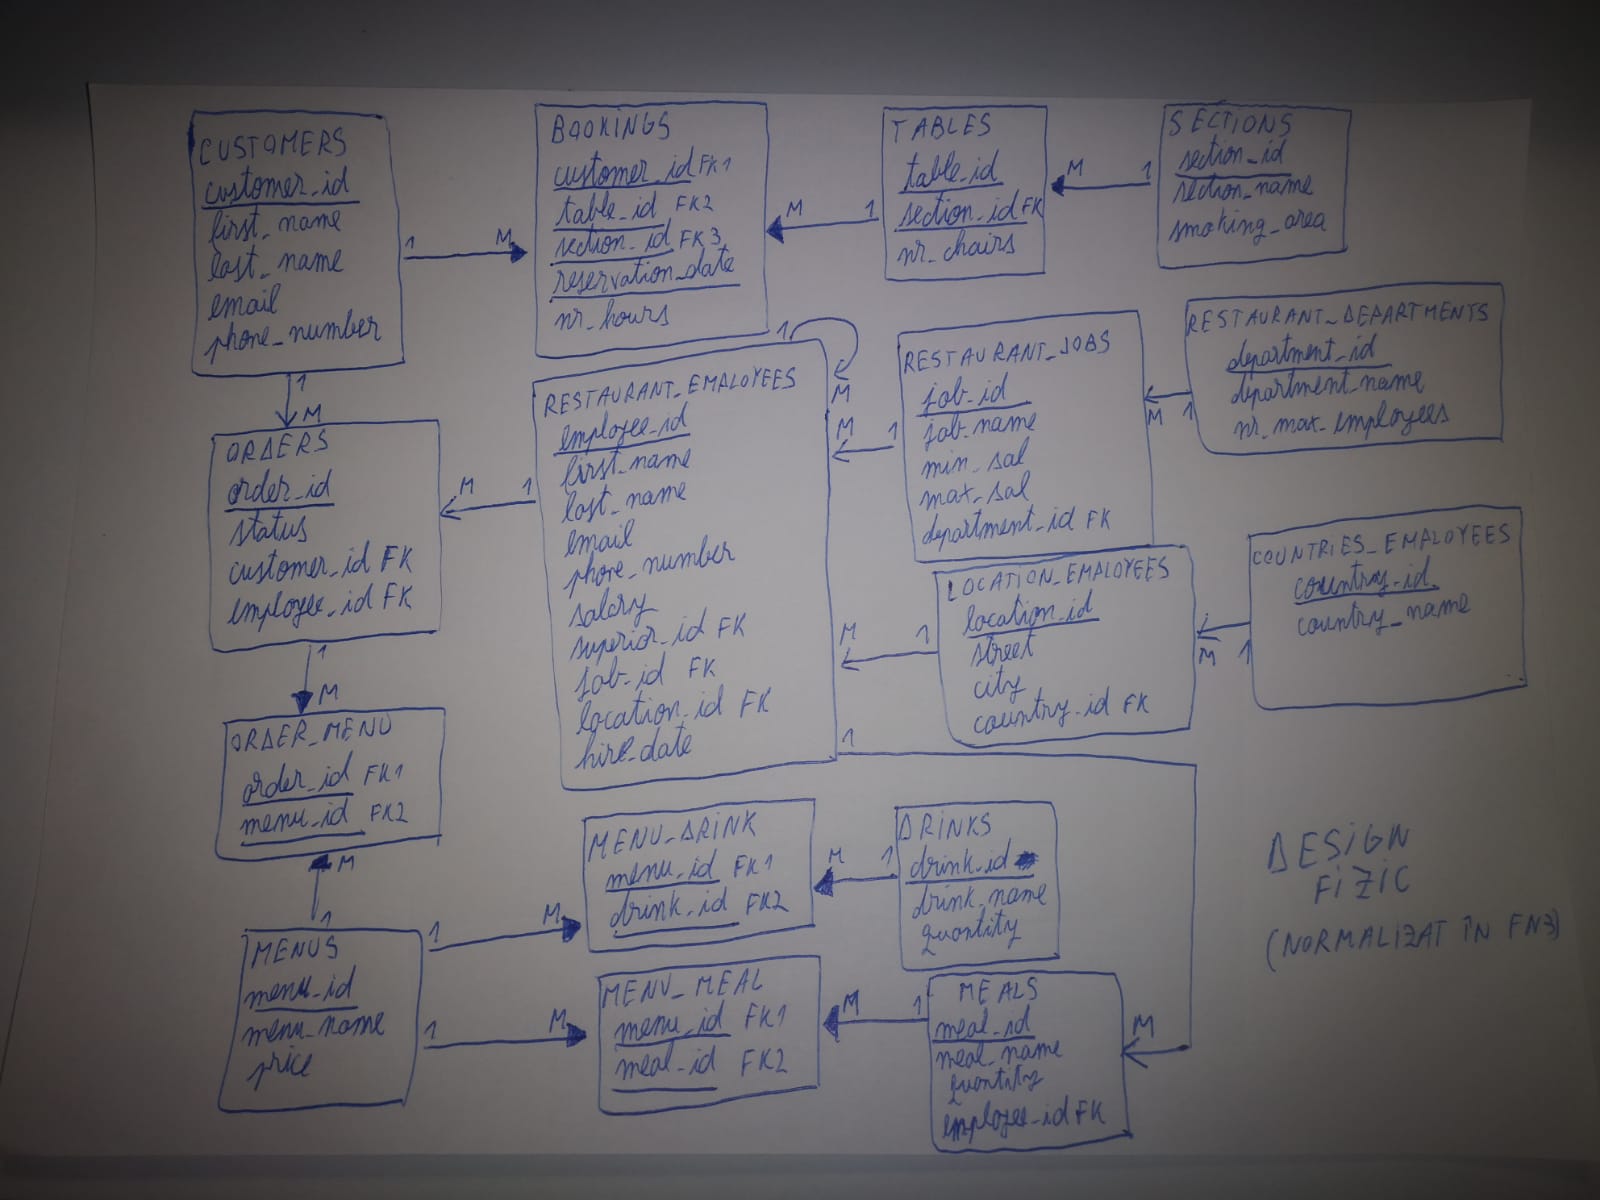 CUSTOMERS
customer_id
first_name
last_name
email
phone_number
1
M
BOOKINGS
customer_id FK1
table_id FK2
section_id FK3
reservation_date
nr_hours
M
1
TABLES
table_id
section_id FK
nr_chairs
M
1
SECTIONS
section_id
section_name
smoking_area
1
M
ORDERS
order_id
status
customer_id FK
employee_id FK
M
1
1
M
RESTAURANT_EMPLOYEES
employee_id
first_name
last_name
email
phone_number
salary
superior_id FK
job_id FK
location_id FK
hire_date
M
1
RESTAURANT_JOBS
job_id
job_name
min_sal
max_sal
department_id FK
M
1
RESTAURANT_DEPARTMENTS
department_id
department_name
nr_max_employees
M
1
LOCATION_EMPLOYEES
location_id
street
city
country_id FK
M
1
COUNTRIES_EMPLOYEES
country_id
country_name
1
M
ORDER_MENU
order_id FK1
menu_id FK2
M
1
MENUS
menu_id
menu_name
price
1
M
MENU_DRINK
menu_id FK1
drink_id FK2
M
1
DRINKS
drink_id
drink_name
quantity
1
M
MENU_MEAL
menu_id FK1
meal_id FK2
M
1
MEALS
meal_id
meal_name
quantity
employee_id FK
1
M
DESIGN
FIZIC
(NORMALIZAT ÎN FN3)